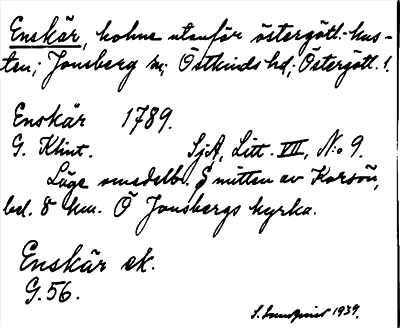 Enskär, holme utanför östergötl.-kus-
ten; Jonsberg sn; Östkinds hd; Östergötl. l.
Enskär 1789.
G. Klint. SjA, Litt. VII, No 9.
Läge omedelb. S mitten av Korsön,
bel. 8 km. Ö Jonsbergs kyrka.
Enskär ek.
G. 56.
S. 1939.